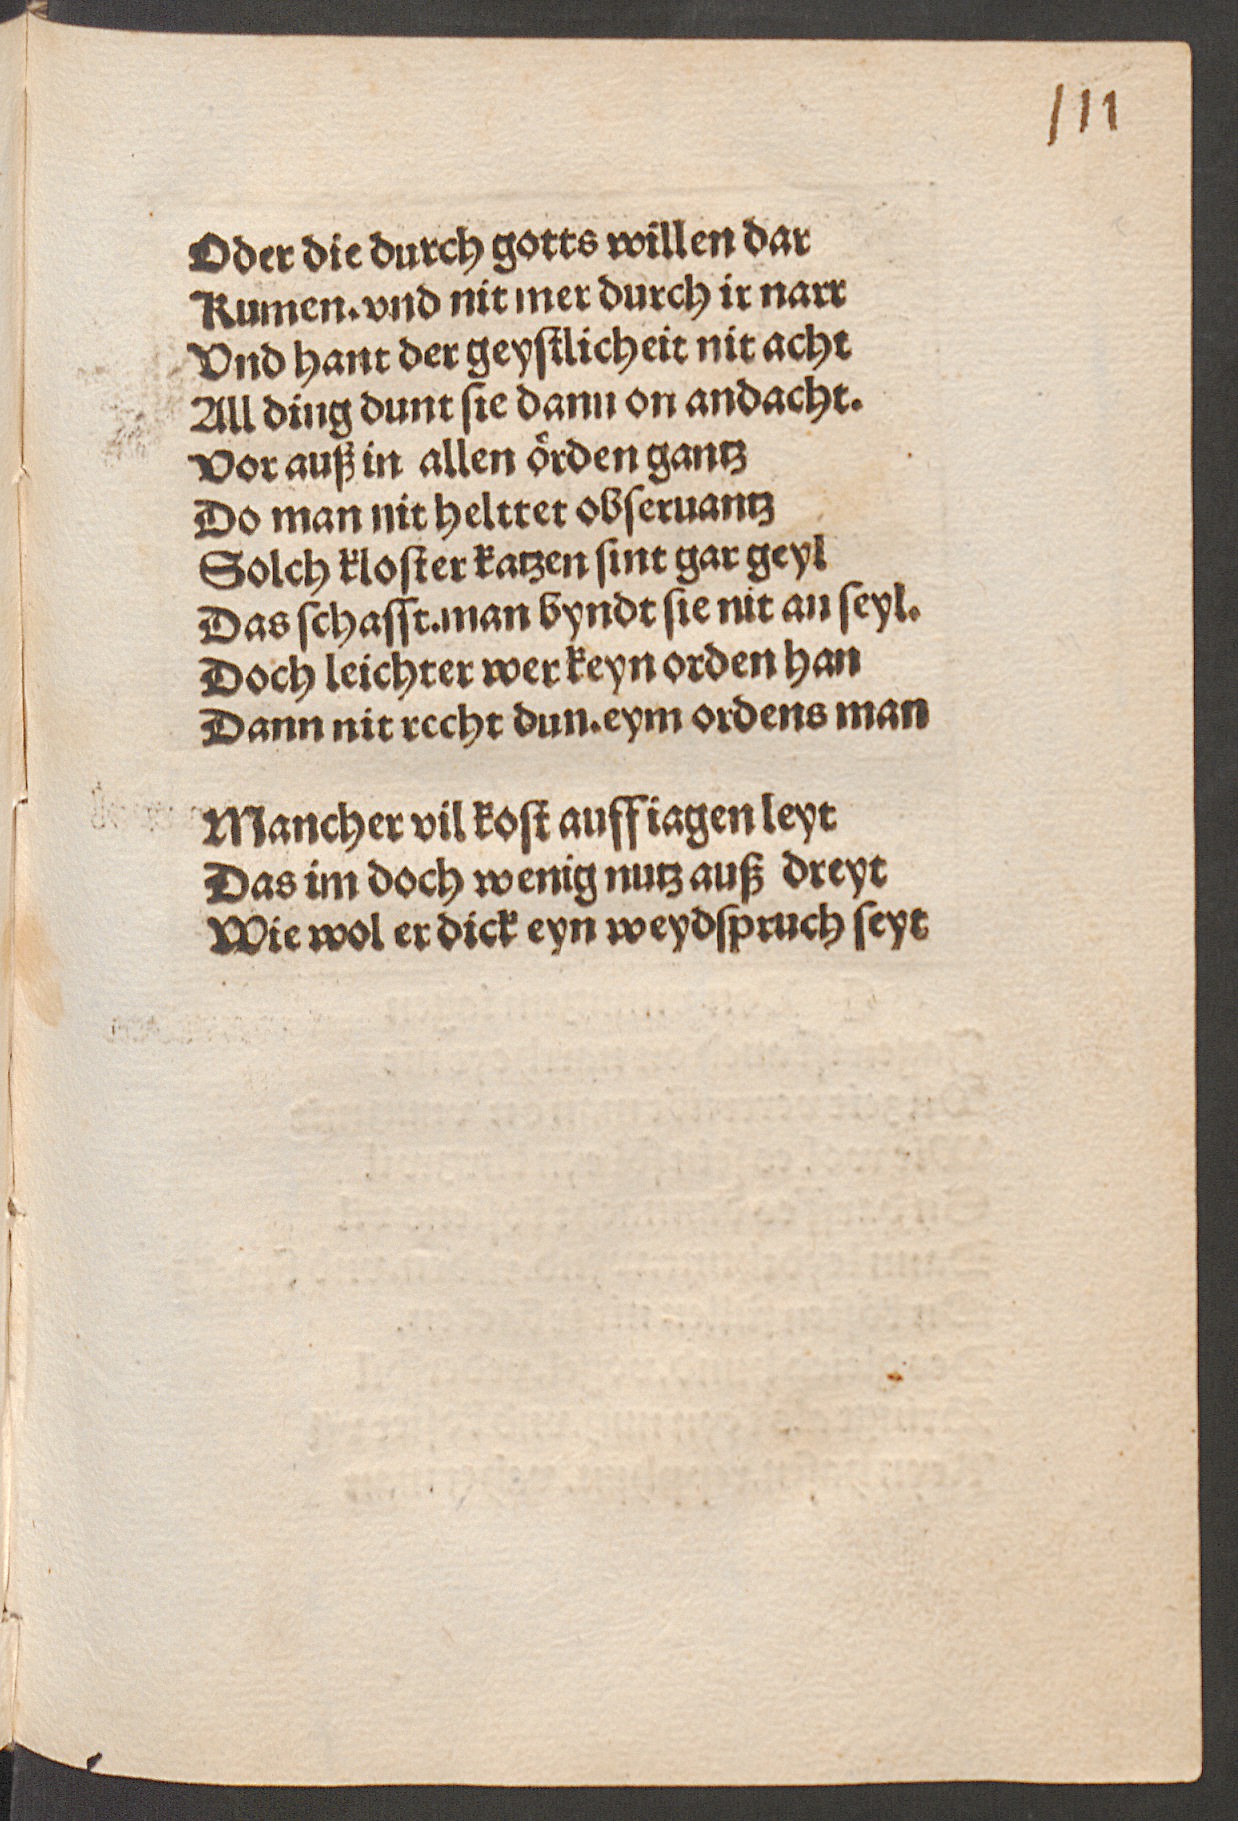 111
Oder die durch gotts willen dar
Kumen. vnd nit mer durch ir narr
Vnd hant der geyſtlicheit nit acht
All ding dunt ſie dann on andacht.
Vor auß in allen oͤrden gantz
Do man nit helttet obſeruantz
Solch kloſter katzen ſint gar geyl
Das ſchafft. man byndt ſie nit an ſeyl.
Doch leichter wer keyn orden han
Dann nit recht dun. eym ordens man
Mancher vil koſt auff iagen leyt
Das im doch wenig nutz auß dreyt
Wie wol er dick eyn weydſpruch ſeyt